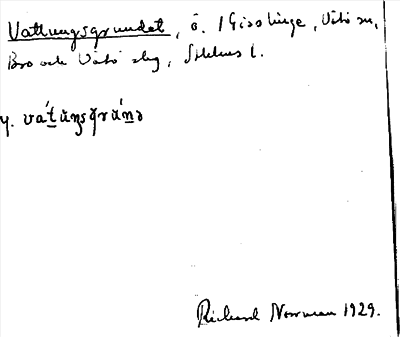 Vattungsgrundet, ö. / Gisslinge, Vätö sn,
Bro och Vätö skg, Sthlms l.
y. va´tŭŋsgrŭ´nə
Richard Norrman 1929.